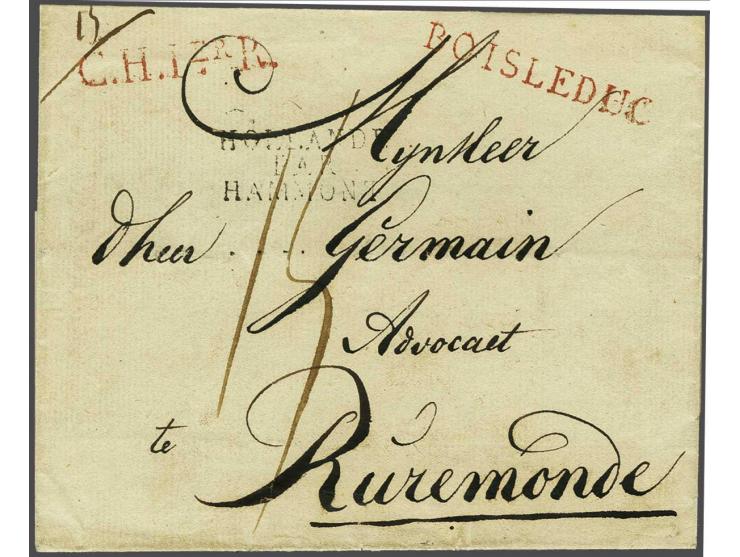 13
C.H. 1ER R.
BOISLEDUC
HOLLANDE
PAR
HAMMONT
MynHeer
dheer .... Germain
15
Advocaet
te Ruremonde